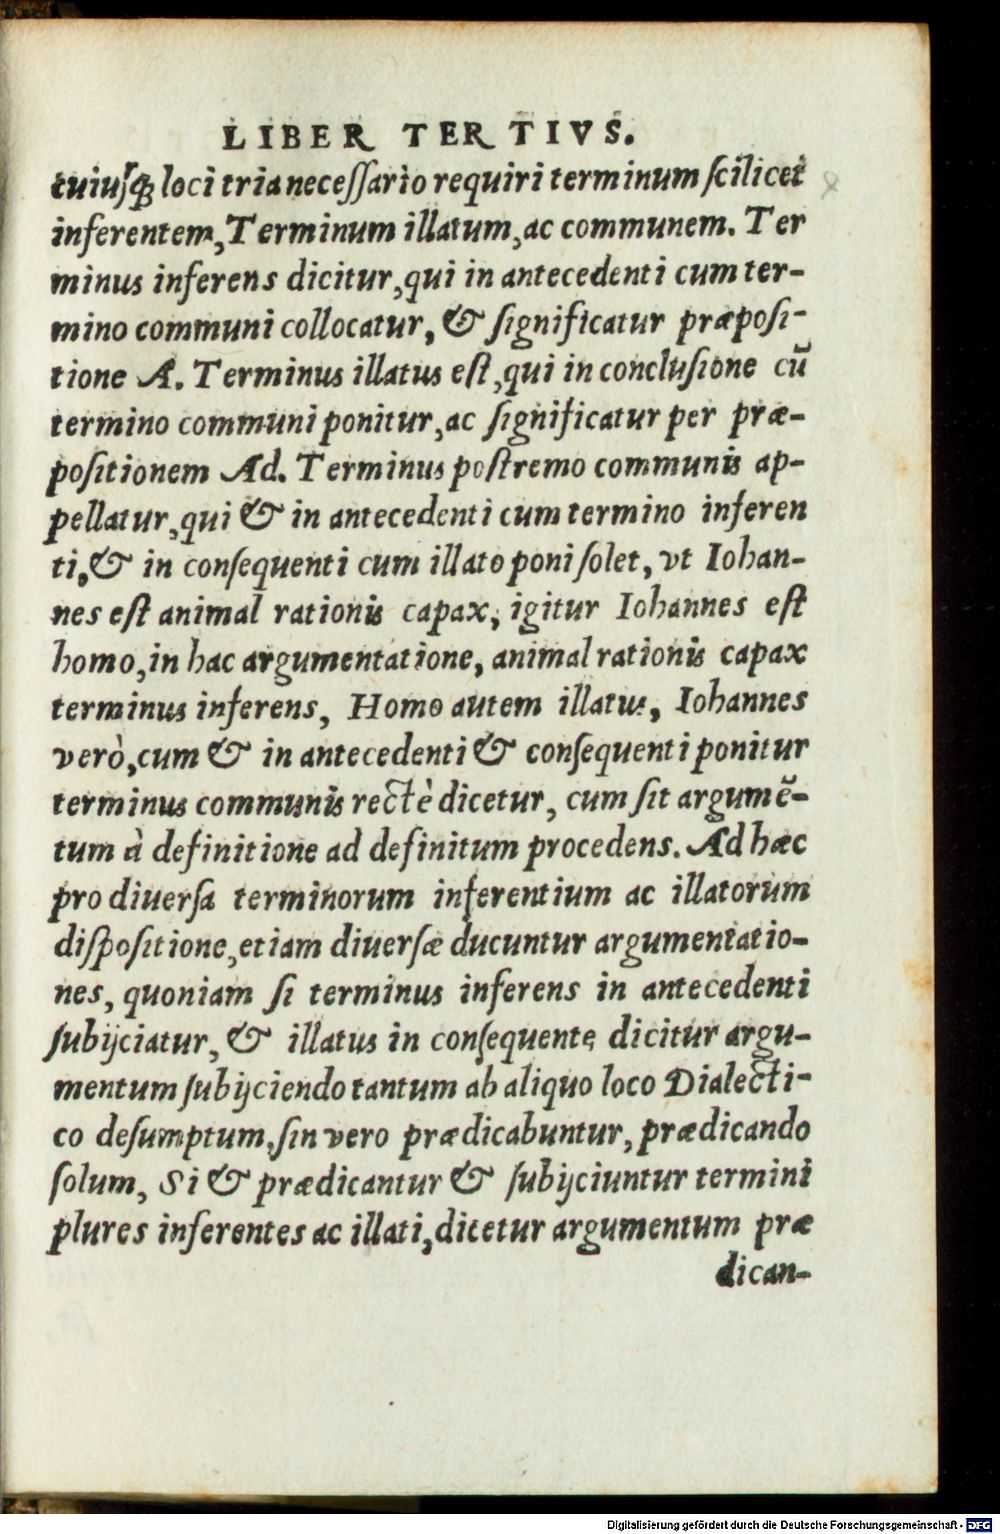 LIBER TERTIVS.
cuiusq; loci tria necessario requiri terminum scilicet
inferentem, Terminum illatum, ac communem. Ter
minus inferens dicitur, qui in antecedenti cum ter-
mino communi collocatur, & significatur præposi-
tione A. Terminus illatus est, qui in conclusione cũ
termino communi ponitur, ac significatur per præ-
positionem Ad. Terminus postremo communis ap-
pellatur, qui & in antecedenti cum termino inferen
ti, & in consequenti cum illato poni solet, vt Iohan-
nes est animal rationis capax, igitur Iohannes est
homo, in hac argumentatione, animal rationis capax
terminus inferens, Homo autem illatus, Iohannes
verò, cum & in antecedenti & consequenti ponitur
terminus communis rectè dicetur, cum sit argumẽ-
tum à definitione ad definitum procedens. Ad hæc
pro diuersa terminorum inferentium ac illatorum
dispositione, etiam diuersæ ducuntur argumentatio-
nes, quoniam si terminus inferens in antecedenti
subijciatur, & illatus in consequente dicitur argu-
mentum subijciendo tantum ab aliquo loco Dialecti-
co desumptum, sin vero prædicabuntur, prædicando
solum, Si & prædicantur & subijciuntur termini
plures inferentes ac illati, dicetur argumentum præ
dican-
Digitalisierung gefördert durch die Deutsche Forschungsgemeinschaft - DFG